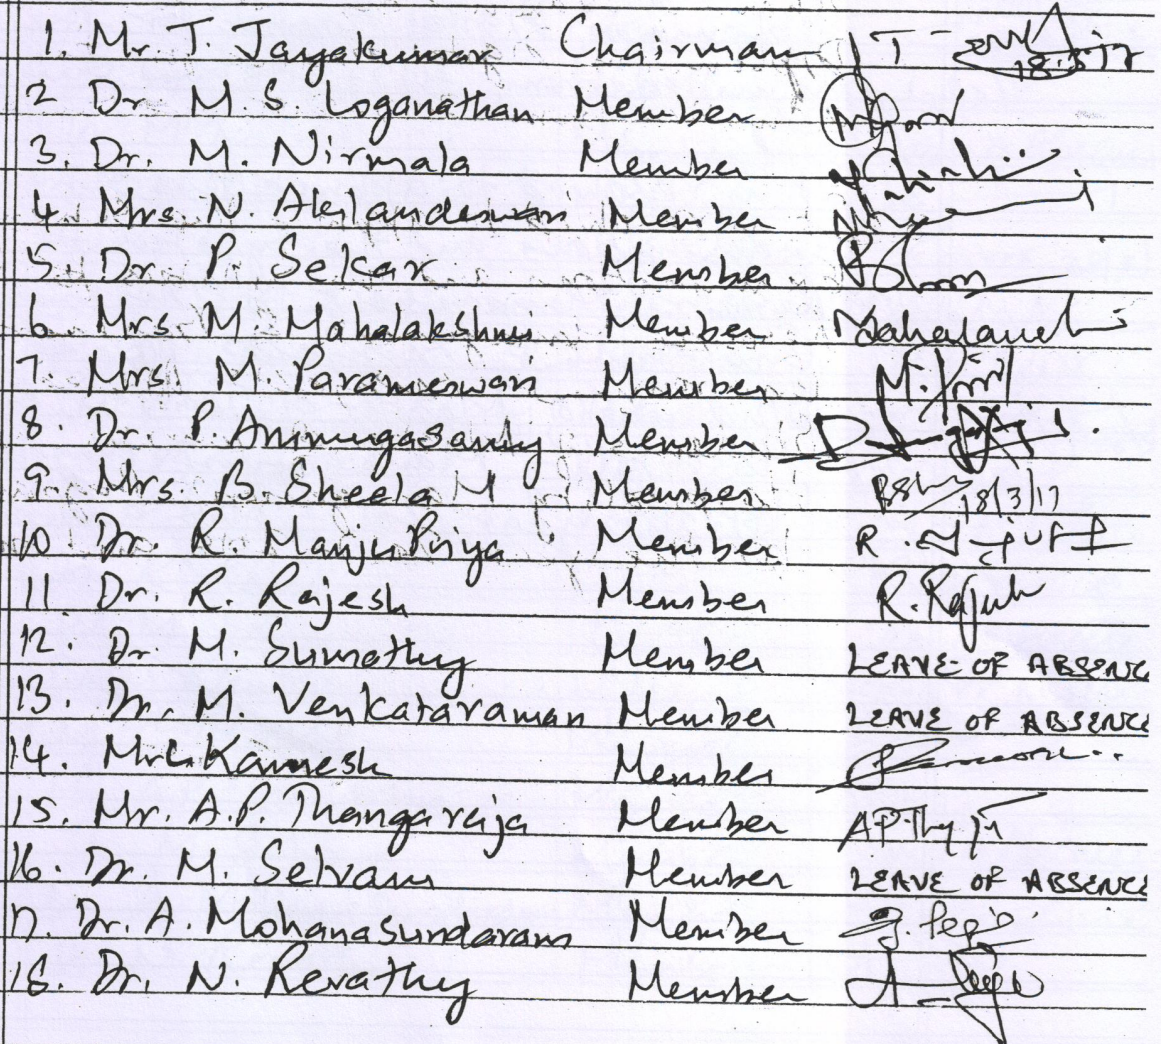 1. Mr. T. Jayakumar Chairman T 18.3.17
2 Dr M S Loganathan Member
3. Dr. M. Nirmala Member
4. Mrs N. Akilandeswari Member
5. Dr P. Sekar Member
6. Mrs M. Mahalakshmi Member
7. Mrs. M. Parameswari Member M.
8. Dr. P. Arumugasamy Member
9. Mrs B. Sheela M Member 18/3/17
10 Dr. R. ManjuPriya Member R.
11. Dr. R. Rajesh Member R. Rajesh
12. Dr M. Sumathy Member LEAVE OF ABSENC
13. Dr. M. Venkataraman Member LEAVE OF ABSENCE
14. Mr.C.Kamesh Member
15. Mr. A.P. Thangaraja Member
16. Dr. M. Selvam Member LEAVE OF ABSENCE
17. Dr. A. Mohanasundaram Member
18. Dr. N. Revathy Member